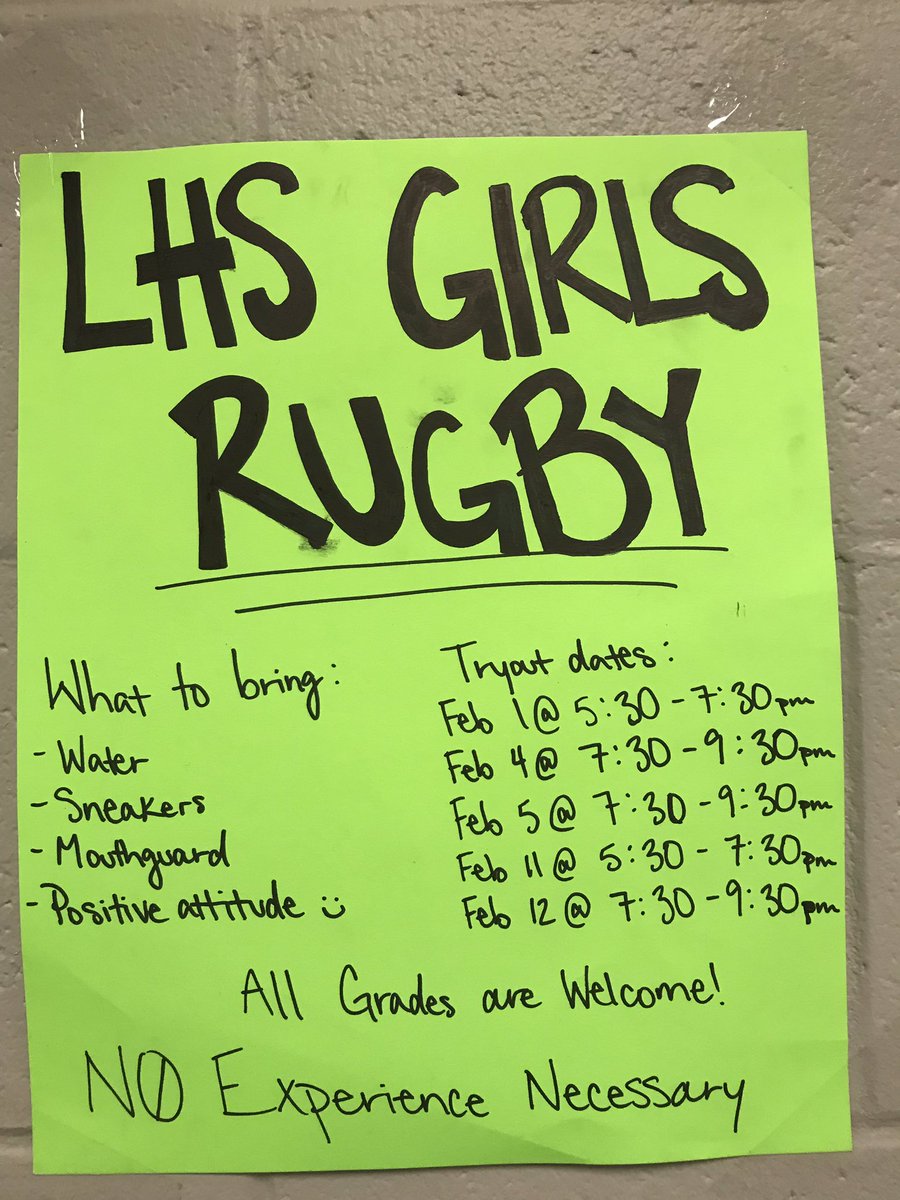 LHS GIRLS
RUGBY
What to bring:
- Water
- Sneakers
- Mouthguard
- Positive attitude :)
Tryout dates:
Feb 1 @ 5:30 - 7:30pm
Feb 4 @ 7:30 - 9:30pm
Feb 5 @ 7:30 - 9:30pm
Feb 11 @ 5:30 - 7:30pm
Feb 12 @ 7:30 - 9:30pm
All Grades are Welcome!
NO Experience Necessary